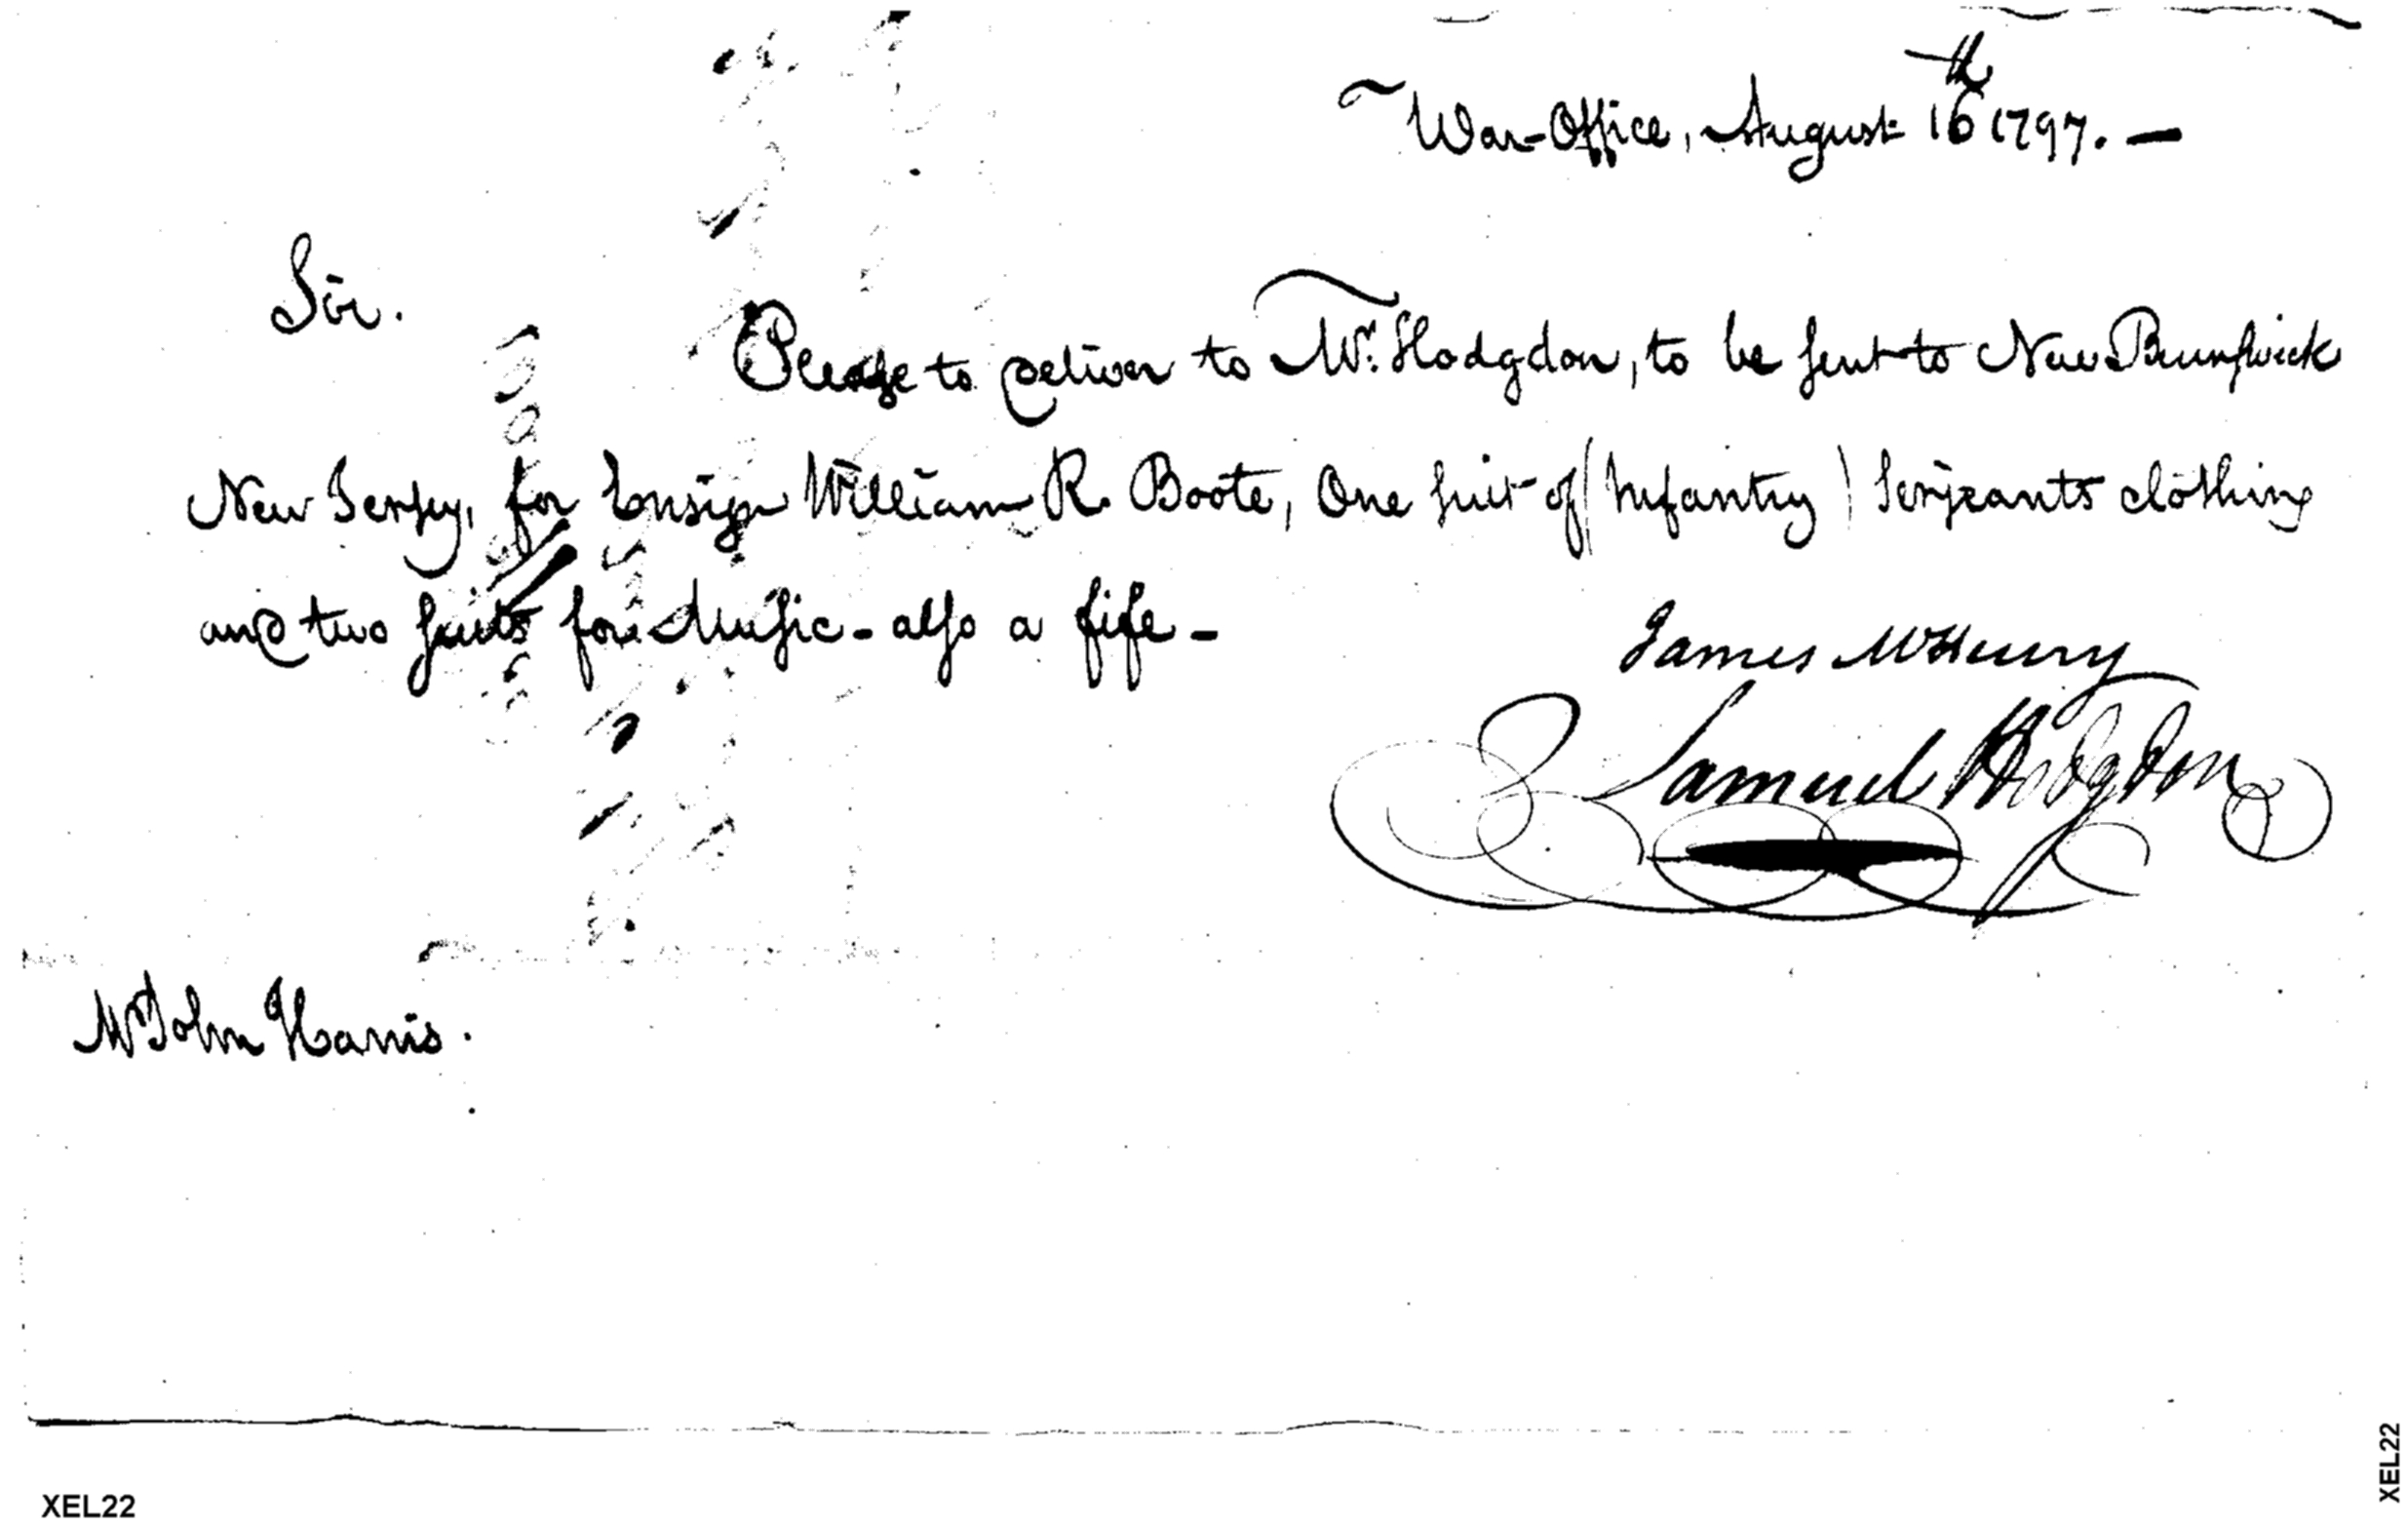 War-Office, August 16th 1797. —
Sir.
Please to deliver to Mr. Hodgdon, to be sent to New Brunswick
New Jersey, for Ensign William R. Boote, One suit of (Infantry) Serjeants clothing
and two suits for Music - also a fife -
James McHenry
Samuel Hodgdon
Mr John Harris.
XEL22
XEL22